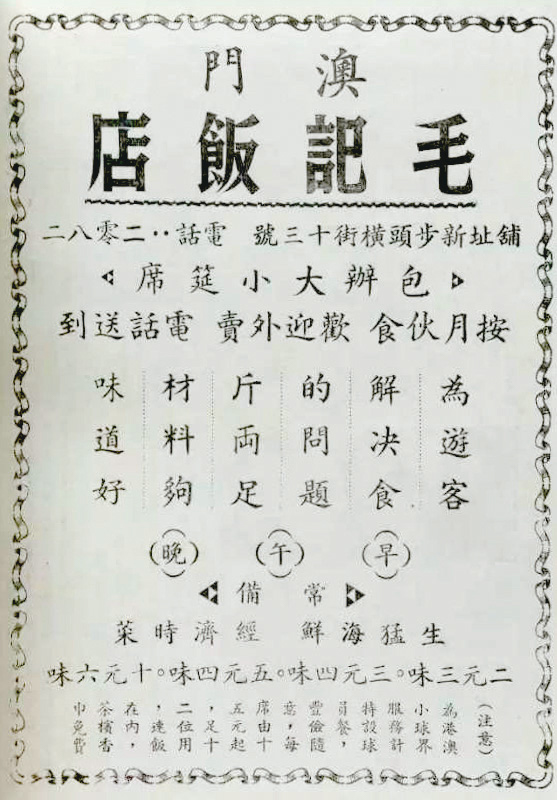 澳門
毛記飯店
舖址新步頭橫街十三號 電話‥二零八二
包辦大小筵席
按月伙食 歡迎外賣 電話送到
為遊客
解决食
的問題
斤両足
材料夠
味道好
(早) (午) (晚)
常備
生猛海鮮 經濟時菜
二元三味。三元四味。五元四味。十元六味
(注意)
為港澳
小球界
服務計
特設球
員餐，
豐儉隨
意，每
席由十
五元起
，足十
二位用
，連飯
在內，
茶檳香
巾免費